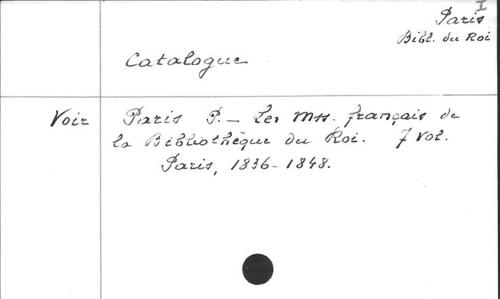 I
Paris
Bibl. du Roi
Catalogue
Voir Paris P. - Les Mss. français de
la Bibliothèque du Roi. 7 Vol.
Paris, 1836-1848.